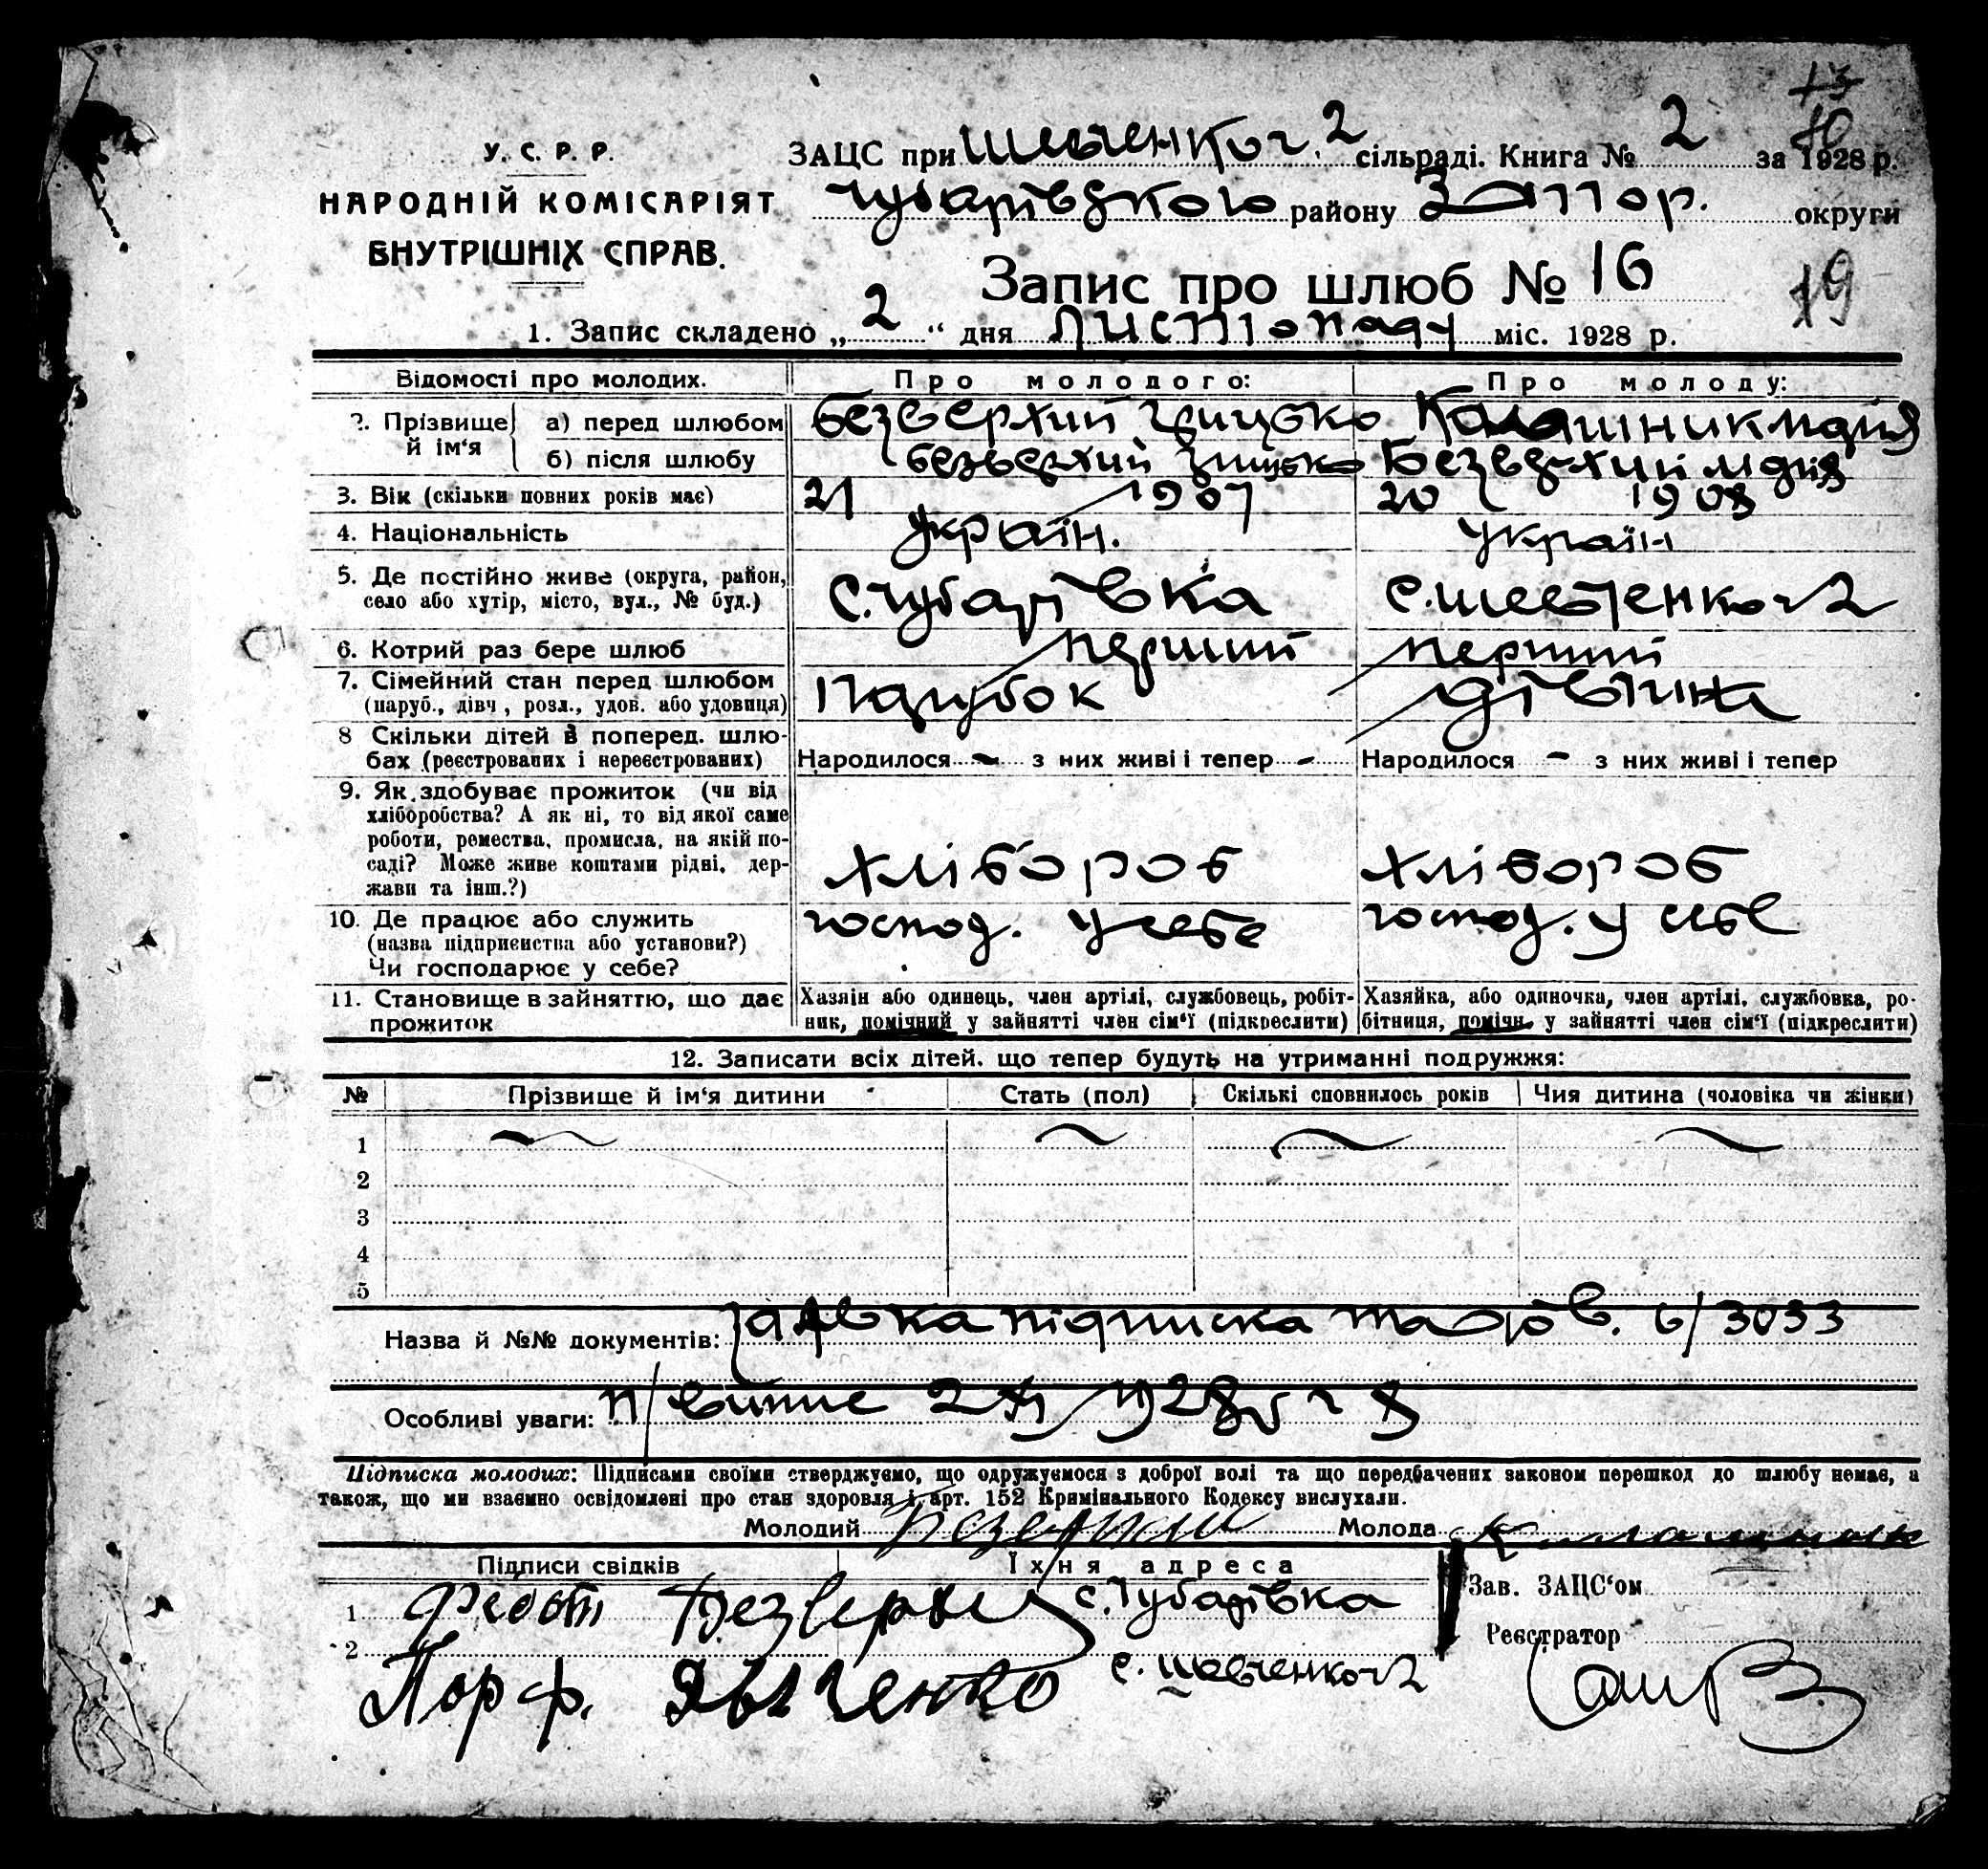 13
У. С. Р. Р.
НАРОДНІЙ КОМІСАРІЯТ
ВНУТРІШНІХ СПРАВ.
ЗАЦС при Шевченков. 2 сільраді. Книга № 2 за 1928 р.
Чубарівського району Запор. округи
Запис про шлюб № 16
19
1. Запис складено „ 2 “ дня Листопаду міс. 1928 р.
Відомості про молодих. Про молодого: Про молоду:
2. Прізвище й ім‘я
а) перед шлюбом Безверхий Грицько Калашник Марія
б) після шлюбу Безверхий Грицько Безверхий Марія
3. Вік (скільки повних років має) 21 1907 20 1908
4. Національність Україн. Україн
5. Де постійно живе (округа, район,
село або хутір, місто, вул., № буд.) с. Чубарівка с. Шевченков 2
6. Котрий раз бере шлюб перший перший
7. Сімейний стан перед шлюбом
(паруб., дівч., розл., удов. або удовиця) Парубок дівчина
8 Скільки дітей в поперед. шлю-
бах (реєстрованих і нереєстрованих) Народилося - з них живі і тепер - Народилося - з них живі і тепер
9. Як здобуває прожиток (чи від
хліборобства? А як ні, то від якої саме
роботи, ремества, промисла, на якій по-
саді? Може живе коштами рідні, дер-
жави та інш.?) хлібороб хлібороб
10. Де працює або служить
(назва підприєнства або установи?)
Чи господарює у себе? господ. у себе господ. у себе
11. Становище в зайняттю, що дає
прожиток
Хазяін або одинець, член артілі, службовець, робіт-
ник, помічний у зайнятті член сім‘ї (підкреслити)
Хазяйка, або одиночка, член артілі, службовка, ро-
бітниця, помічн. у зайнятті член сім‘ї (підкреслити)
12. Записати всіх дітей. що тепер будуть на утриманні подружжя:
№ Прізвище й ім‘я дитини Стать (пол) Скількі сповнилось років Чия дитина (чоловіка чи жінки)
1
2
3
4
5
Назва й №№ документів: заявка підписка та 6/3033
Особливі уваги: 1928
Підписка молодих: Підписами своїми стверджуємо, що одружуємося з доброї волі та що передбачених законом перешкод до шлюбу немає, а
також, що ми взаємно освідомлені про стан здоровля і арт. 152 Кримінального Кодексу вислухали.
Молодий Безверхий Молода Калашник
Підписи свідків Їхня адреса
Зав. ЗАЦС‘ом
1 Феофт Безверхий с. Чубарівка
Реєстратор
2 Порф. с. Шевченков 2